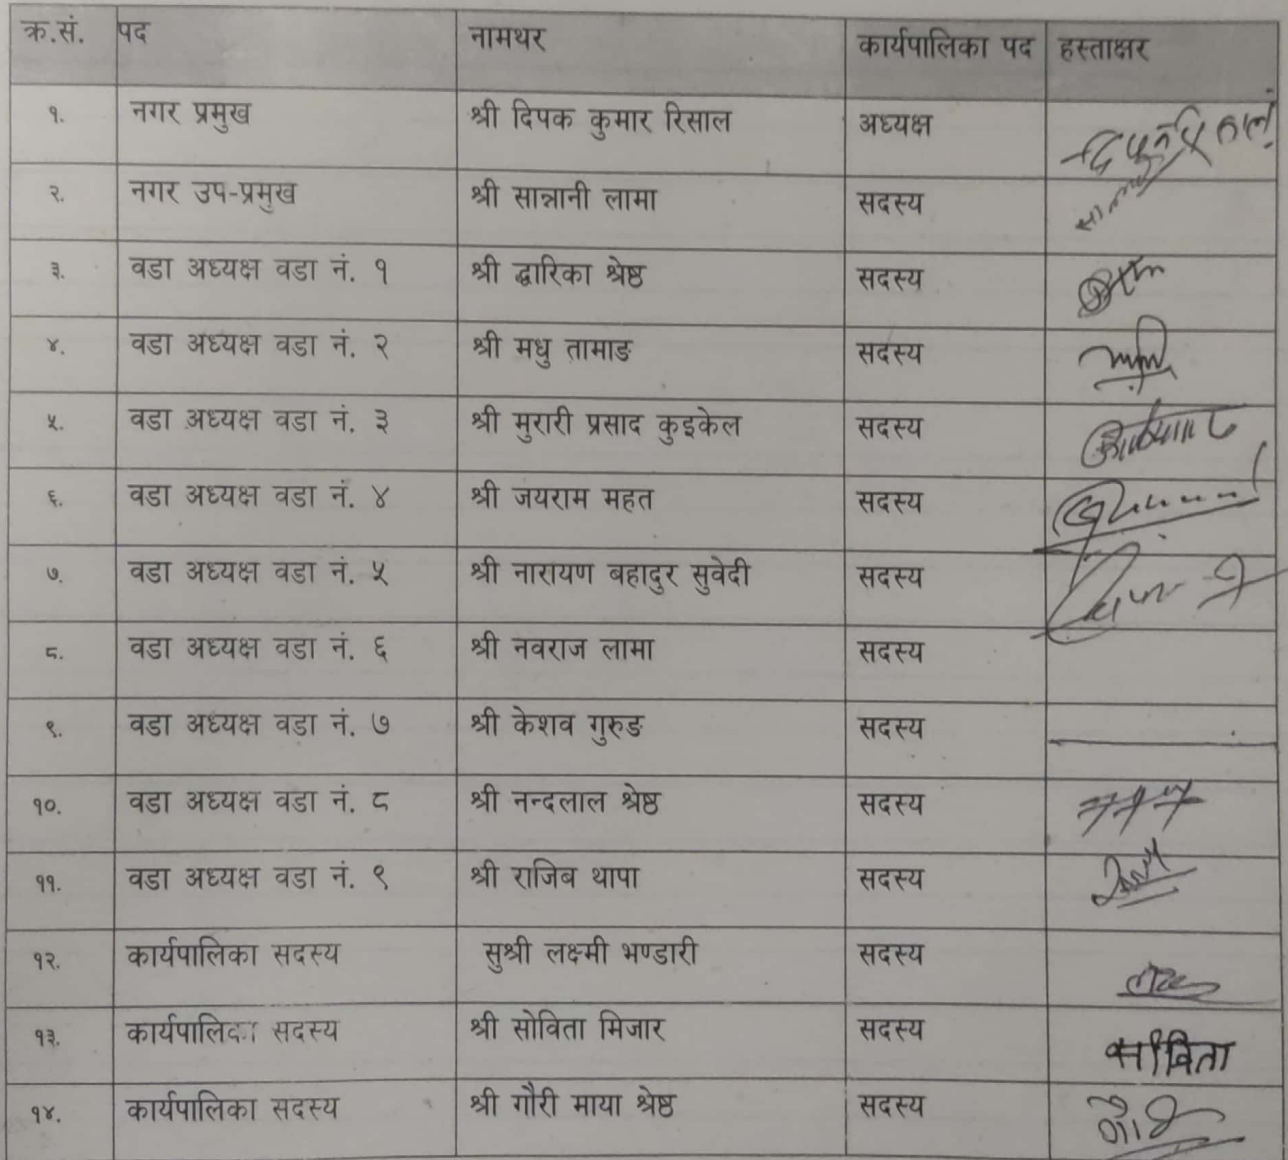 क्र.सं. पद नामथर कार्यपालिका पद हस्ताक्षर
१. नगर प्रमुख श्री दिपक कुमार रिसाल अध्यक्ष
२. नगर उप-प्रमुख श्री सान्नानी लामा सदस्य
३. वडा अध्यक्ष वडा नं. १ श्री द्धारिका श्रेष्ठ सदस्य
४. वडा अध्यक्ष वडा नं. २ श्री मधु तामाङ सदस्य
५. वडा अध्यक्ष वडा नं. ३ श्री मुरारी प्रसाद कुइकेल सदस्य
६. वडा अध्यक्ष वडा नं. ४ श्री जयराम महत सदस्य
७. वडा अध्यक्ष वडा नं. ५ श्री नारायण बहादुर सुवेदी सदस्य
८. वडा अध्यक्ष वडा नं. ६ श्री नवराज लामा सदस्य
९. वडा अध्यक्ष वडा नं. ७ श्री केशव गुरुङ सदस्य
१०. वडा अध्यक्ष वडा नं. ८ श्री नन्दलाल श्रेष्ठ सदस्य
११. वडा अध्यक्ष वडा नं. ९ श्री राजिब थापा सदस्य
१२. कार्यपालिका सदस्य सुश्री लक्ष्मी भण्डारी सदस्य
१३. कार्यपालिका सदस्य श्री सोविता मिजार सदस्य सोविता
१४. कार्यपालिका सदस्य श्री गौरी माया श्रेष्ठ सदस्य